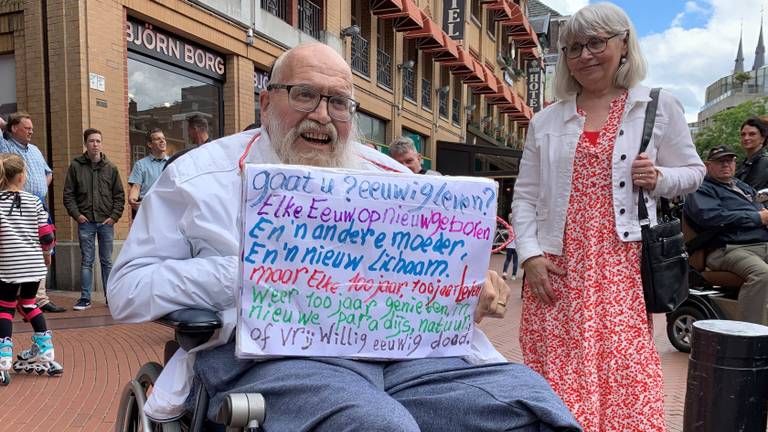 BJÖRN BORG
HOTEL
HOTEL
gaat u ? eeuwig leven?
Elke Eeuw op nieuw geboren
En 'n andere moeder.
En 'n nieuw Lichaam.
maar Elke 100 jaar 100 jaar Leven
weer 100 jaar genieten, in
nieuwe paradijs, natuur
of vrij Willig eeuwig dood.